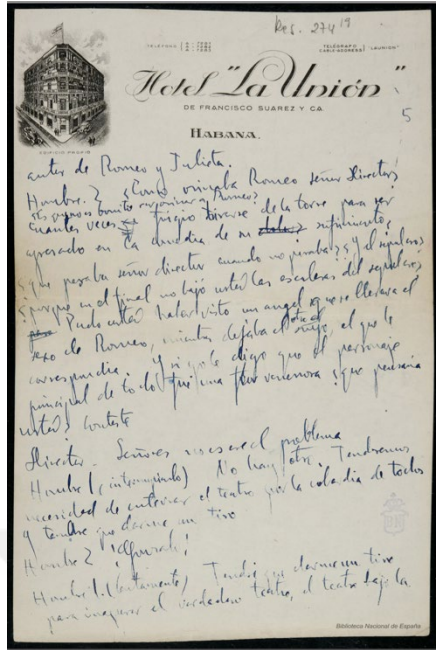 Res. 274 19
TELEFONO
TELEGRAFO
CABLE-ADDRESS "LAUNION"
Hotel "La Unión"
DE FRANCISCO SUAREZ Y CA.
5
HABANA.
EDIFICIO PROPIO
autor de Romeo y Julieta.
Hombre. 2 ¿Como orinaba Romeo señor Director?
¿Es que no es bonito ver orinar a Romeo?
Cuantas veces fingio tirarse de la torre para ser
apresado en la comedia de su sufrimiento?
¿que pasaba señor director cuando no pasaba? ¿y el sepulcro?
¿porque en el final no bajo usted las escaleras del sepulcro?
Pudo usted haber visto un angel que se llevaba el
sexo de Romeo, mientras dejaba el otro el suyo, el que le
correspondia. Y si yo le digo que el personaje
principal de todo fue una flor venenosa ¿que pensaria
usted? Conteste
Director. Señores no es ese el problema
Hombre 1 (interrumpiendo) No hay otro. Tendremos
necesidad de enterrar el teatro por la cobardia de todos
y tendre que darme un tiro
Hombre 2 ¡Gonzalo!
Hombre 1. (lentamente) Tendré que darme un tiro
para inaugurar el verdadero teatro, el teatro bajo la
BN
Biblioteca Nacional de España